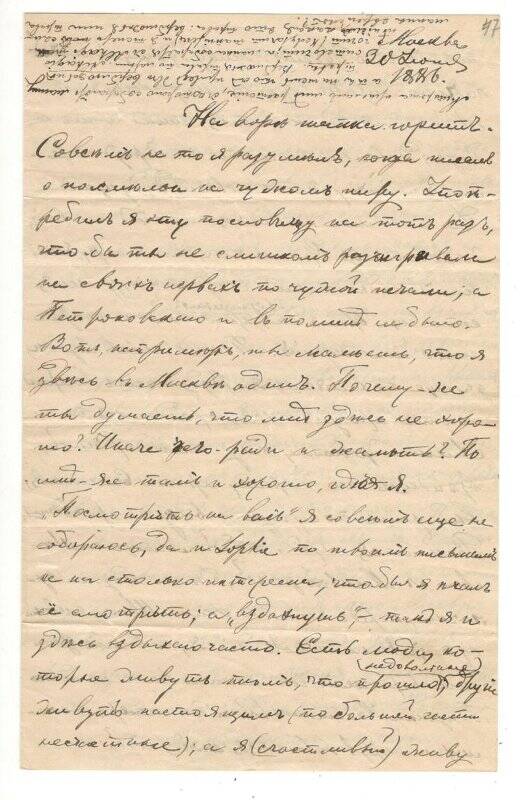 47
Москва
30 Іюня
1886.
На ворѣ шапка горитъ.
Совсѣмъ не то я разумѣлъ, когда писалъ
о похмельи на чужомъ пиру. Упот-
ребилъ я эту пословицу на тотъ разъ,
чтобы ты не слишкомъ разыгрывала
на своихъ нервахъ по чужой печали; а
Петряковскаго и въ поминѣ не было.
Вотъ, напримѣръ, ты жалѣешь, что я
здѣсь въ Москвѣ одинъ. Почему-же
ты думаешь, что мнѣ здѣсь не хоро-
шо? Иначе чего-ради и жалѣть? По
мнѣ-же тамъ и хорошо, гдѣ я.
"Посмотрѣть на васъ" я совсѣмъ еще не
собираюсь, да и Sophie по твоимъ письмамъ
не на столько интересна, чтобы я ѣхалъ
её смотрѣть; а "вздохнуть" – такъ я и
здѣсь вздыхаю часто. Есть люди, ко-
торые живутъ тѣмъ, что прошло (недовольные), другіе
живутъ настоящимъ (по большей части
несчастные); а я (счастливый) живу